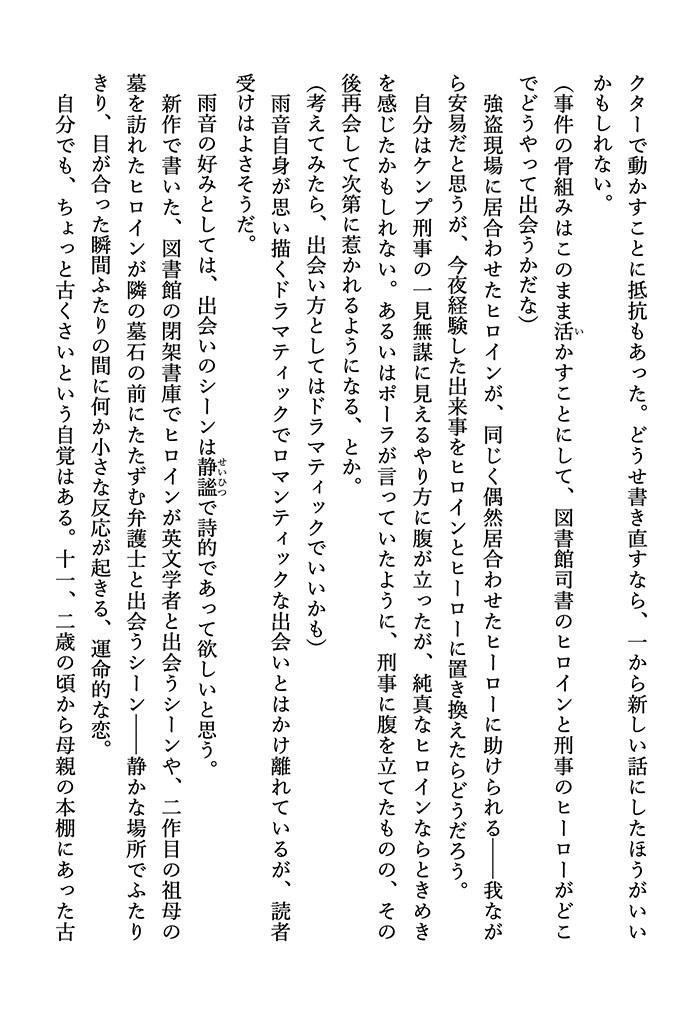 クターで動かすことに抵抗もあった。どうせ書き直すなら、一から新しい話にしたほうがいい
かもしれない。
（事件の骨組みはこのまま活かすことにして、図書館司書のヒロインと刑事のヒーローがどこ
でどうやって出会うかだな）
強盗現場に居合わせたヒロインが、同じく偶然居合わせたヒーローに助けられる――我なが
ら安易だと思うが、今夜経験した出来事をヒロインとヒーローに置き換えたらどうだろう。
自分はケンプ刑事の一見無謀に見えるやり方に腹が立ったが、純真なヒロインならときめき
を感じたかもしれない。あるいはポーラが言っていたように、刑事に腹を立てたものの、その
後再会して次第に惹かれるようになる、とか。
（考えてみたら、出会い方としてはドラマティックでいいかも）
雨音自身が思い描くドラマティックでロマンティックな出会いとはかけ離れているが、読者
受けはよさそうだ。
雨音の好みとしては、出会いのシーンは静謐で詩的であって欲しいと思う。
新作で書いた、図書館の閉架書庫でヒロインが英文学者と出会うシーンや、二作目の祖母の
墓を訪れたヒロインが隣の墓石の前にたたずむ弁護士と出会うシーン――静かな場所でふたり
きり、目が合った瞬間ふたりの間に何か小さな反応が起きる、運命的な恋。
自分でも、ちょっと古くさいという自覚はある。十一、二歳の頃から母親の本棚にあった古